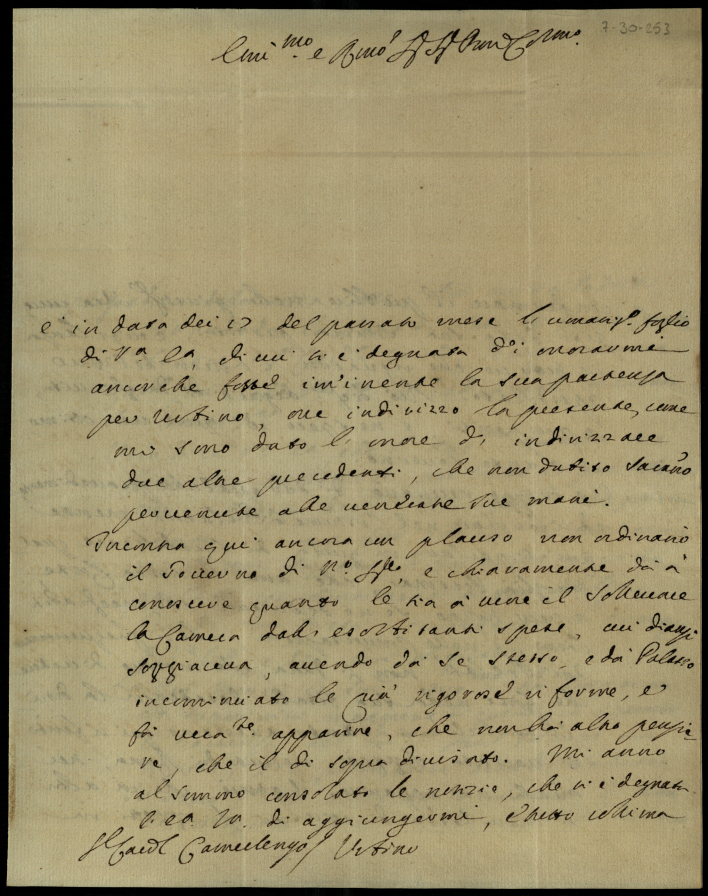 7-30-253
Emi.mo e Rmo Sig Sig Pron Colmo.
è in data dei 17 del passato mese l'umaniss.o foglio
di V.a E.a, di cui si è degnata d'onorarmi
ancorchè fosse im'inente la sua partenza
per Urbino, ove indirizzo la presente, come
mi sono dato l'onore di indirizzare
due altre precedenti, che non dubito saran'o
pervenute alle venerate sue mani.
Incontra qui ancora un plauso non ordinario
il Governo di N.o Sig.re, e chiaramente dà à
conoscere quanto le sia à cuore il sollevare
la Camera dall'esorbitanti spese, cui dianzi
soggiaceva, avendo da se stesso, e da Palazzo
incominciato le più rigorose riforme, e
fà apparire, che non hà altro pensie-
re, che il di sopra divisato. Mi anno
al sommo consolato le notizie, che si è degnata
V.a E.a di aggiungermi, è tutto
Sig.r Card.l Camerlengo / Urbino